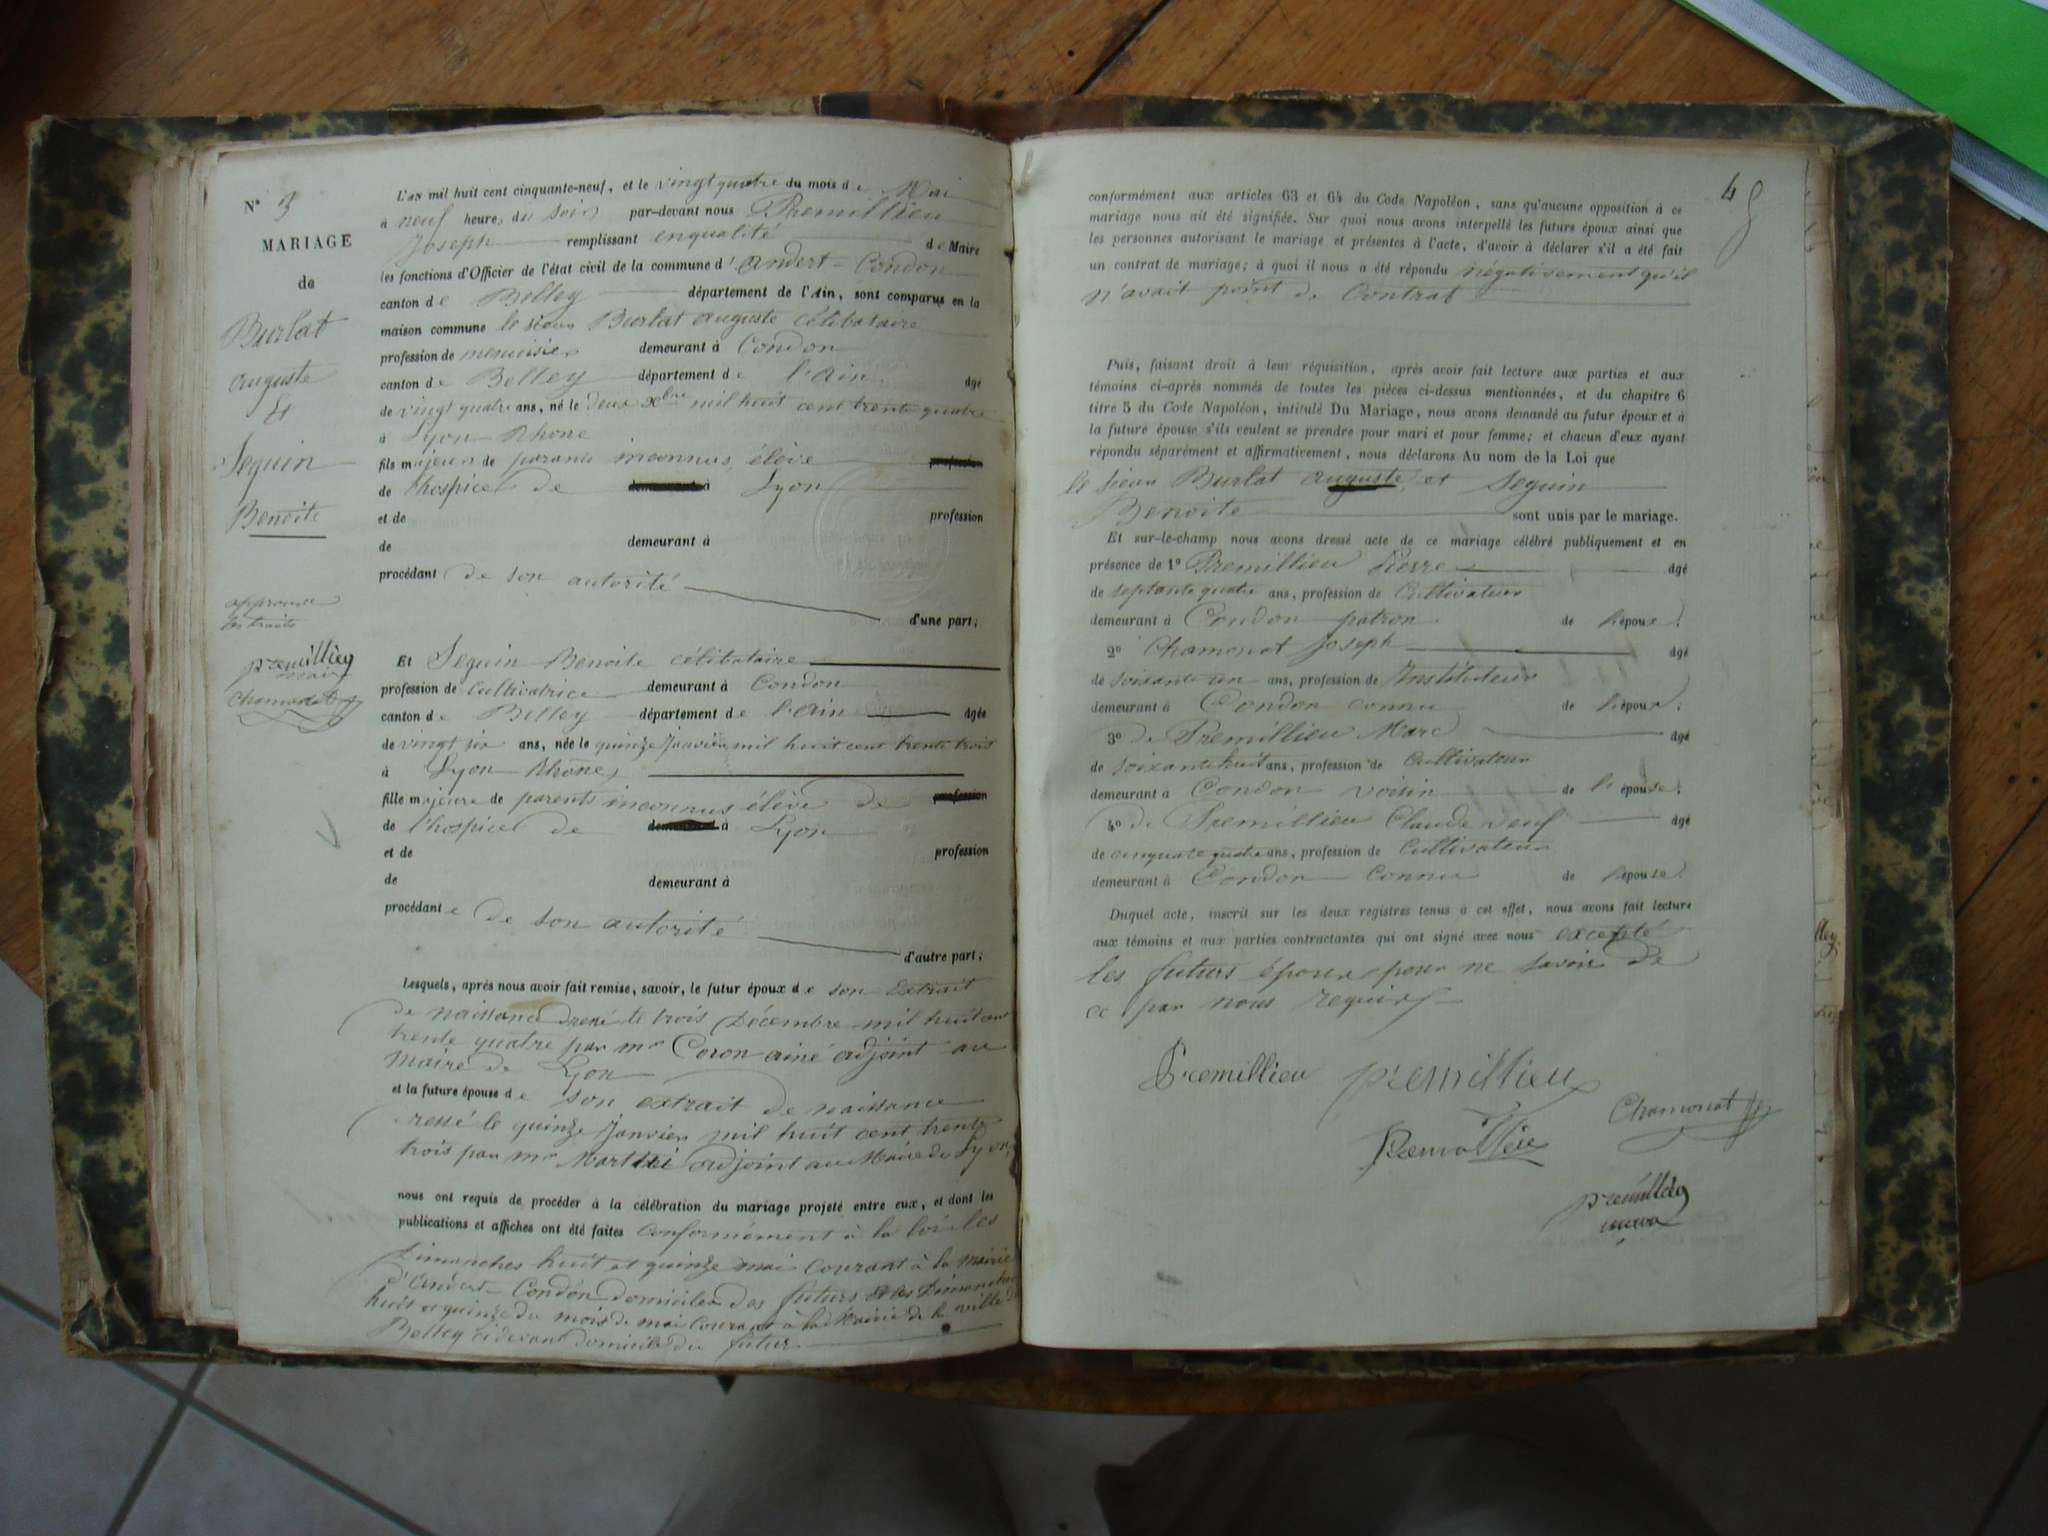 N° 3
MARIAGE
de
Burlat
auguste
Et
Seguin
Benoite
approuvé
les traits
premillieu
maire
Chamonat
L'an mil huit cent cinquante-neuf, et le vingt quatre du mois de Mai
a neuf heures du soir par-devant nous Premillieu
Joseph remplissant en qualité de Maire
les fonctions d'Officier de l'état civil de la commune d'andert-Condon
canton de Belley département de l'Ain, sont comparus en la
maison commune le sieur Burlat auguste célibataire
profession de menuisier demeurant à Condon
canton de Belley département de l'ain âgé
de vingt quatre ans, né le deux Xbre mil huit cent trente quatre
à Lyon Rhone
fils majeur de parants inconnus, élève profession
de l'hospice de demeurant à Lyon
et de profession
de demeurant à
procédant de son autorité
d'une part;
Et Seguin Benoite célibataire
profession de cultivatrice demeurant à Condon
canton de Belley département de l'ain âgée
de vingt six ans, née le quinze Janvier mil huit cent trente trois
à Lyon Rhône
fille majeure de parents inconnus élève de profession
de l'hospice de demeurant à Lyon
et de profession
de demeurant à
procédante de son autorité
d'autre part;
Lesquels, après nous avoir fait remise, savoir, le futur époux de son Extrait
de naissance dressé le trois Décembre mil huit cent
trente quatre par mr Coron ainé adjoint au
Maire de Lyon
et la future épouse de son extrait de naissance
dressé le quinze Janvier mil huit cent trente
trois par mr adjoint au Maire de Lyon,
nous ont requis de procéder à la célébration du mariage projeté entre eux, et dont les
publications et affiches ont été faites conformément à la loi les
Dimanches huit et quinze mai courant à la mairie
d'Andert-Condon domicile des futurs et les Dimanches
huit et quinze du mois de mai courant à la Mairie de la ville de
Belley ci devant domicile du futur
48
conformément aux articles 63 et 64 du Code Napoléon, sans qu'aucune opposition à ce
mariage nous ait été signifiée. Sur quoi nous avons interpellé les futurs époux ainsi que
les personnes autorisant le mariage et présentes à l'acte, d'avoir à déclarer s'il a été fait
un contrat de mariage; à quoi il nous a été répondu négativement qu'il
n'avait point de Contrat
Puis, faisant droit à leur réquisition, après avoir fait lecture aux parties et aux
témoins ci-après nommés de toutes les pièces ci-dessus mentionnées, et du chapitre 6
titre 5 du Code Napoléon, intitulé Du Mariage, nous avons demandé au futur époux et à
la future épouse s'ils veulent se prendre pour mari et pour femme; et chacun d'eux ayant
répondu séparément et affirmativement, nous déclarons Au nom de la Loi que
le sieur Burlat auguste, et Seguin
Benoite sont unis par le mariage.
Et sur-le-champ nous avons dressé acte de ce mariage célébré publiquement et en
présence de 1° Premillieu Pierre âgé
de septante quatre ans, profession de Cultivateur
demeurant à Condon patron de l'époux.
2° Chamonat Joseph âgé
de soixante un ans, profession de Instituteur
demeurant à Condon connu de l'époux.
3° de Premillieu Marc âgé
de soixante huit ans, profession de Cultivateur
demeurant à Condon voisin de l'épouse.
4° de Premillieu Claude veuf âgé
de cinquate quatre ans, profession de Cultivateur
demeurant à Condon connu de l'épouse.
Duquel acte, inscrit sur les deux registres tenus à cet effet, nous avons fait lecture
aux témoins et aux parties contractantes qui ont signé avec nous excepté
les futurs époux pour ne savoir de
ce par nous requis
Premillieu premillieu
Chamonat
Premillieu
premillieu
maire